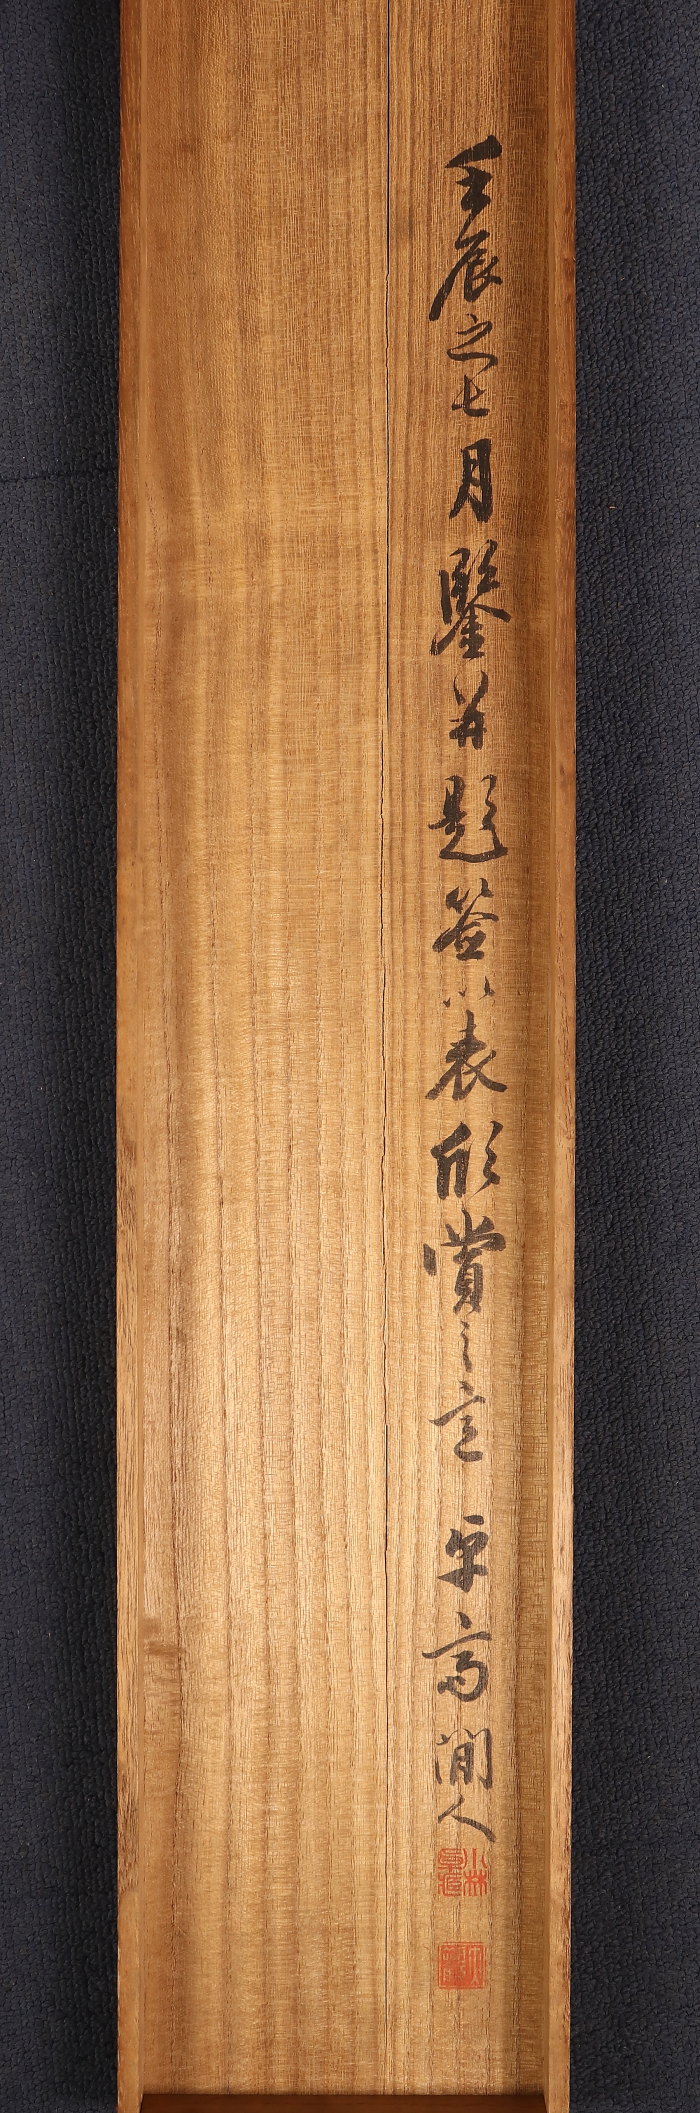 壬辰之七月鑒并題簽以表欣賞之意 平高閒人
小林